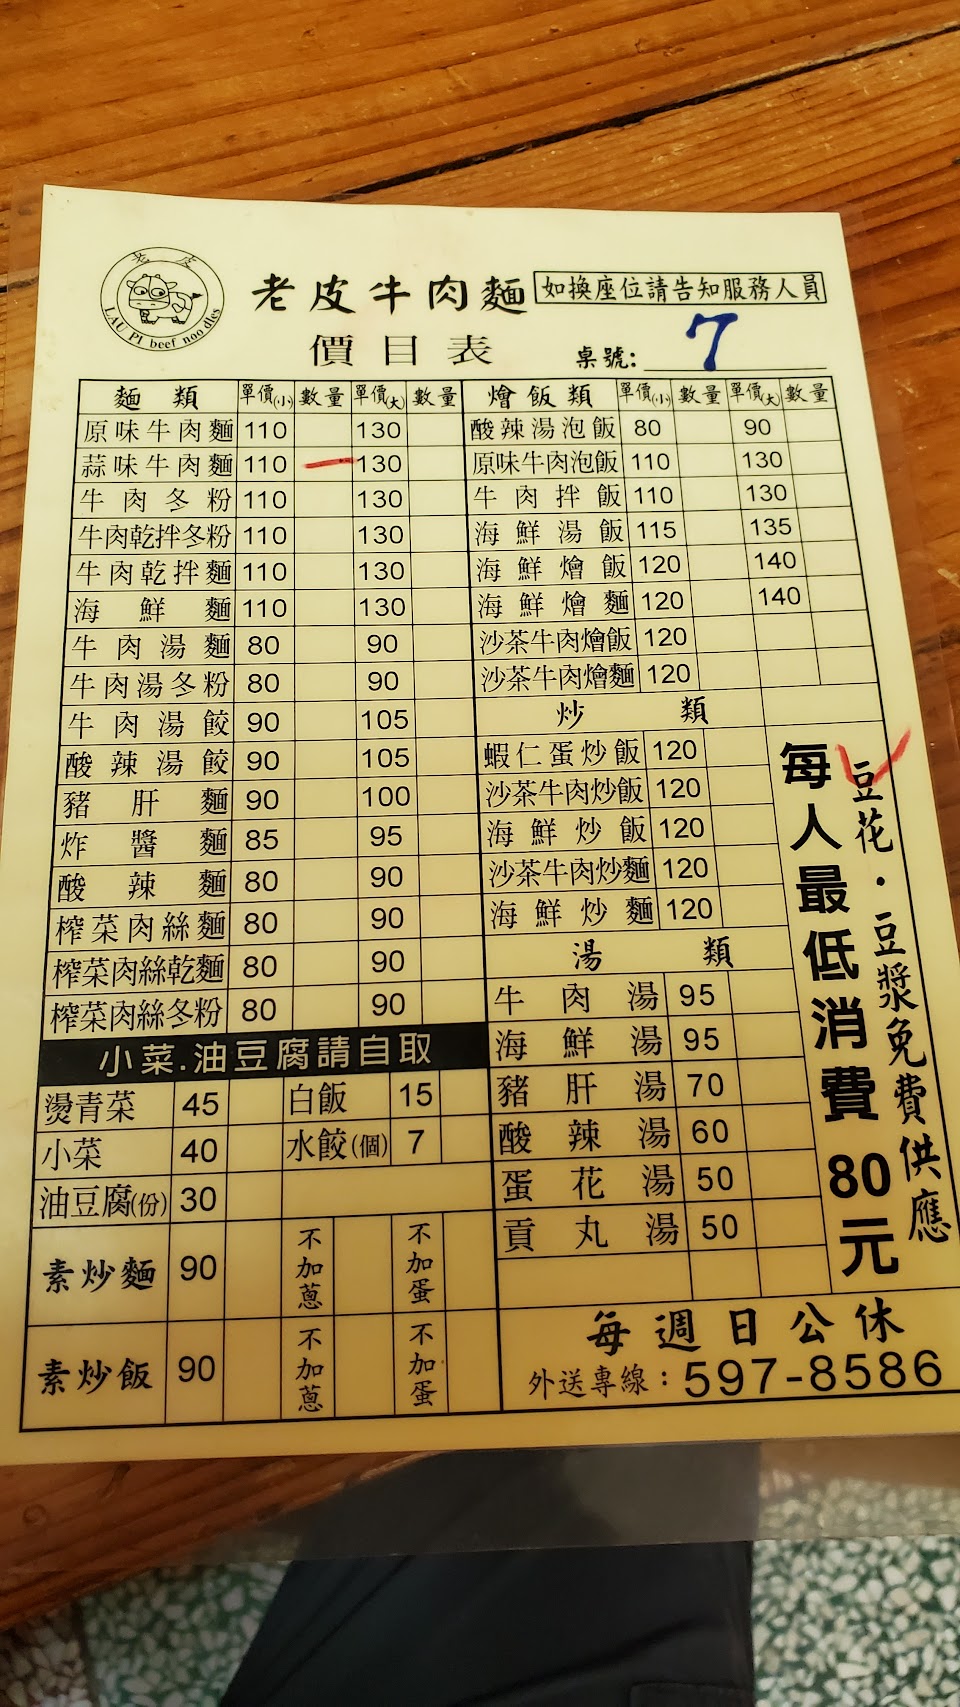 老皮
LAU PI beef noodles
老皮牛肉麵
如換座位請告知服務人員
價目表
桌號: 7
麵類 單價(小) 數量 單價(大) 數量
原味牛肉麵 110 130
蒜味牛肉麵 110 130
牛肉冬粉 110 130
牛肉乾拌冬粉 110 130
牛肉乾拌麵 110 130
海鮮麵 110 130
牛肉湯麵 80 90
牛肉湯冬粉 80 90
牛肉湯餃 90 105
酸辣湯餃 90 105
豬肝麵 90 100
炸醬麵 85 95
酸辣麵 80 90
榨菜肉絲麵 80 90
榨菜肉絲乾麵 80 90
榨菜肉絲冬粉 80 90
小菜.油豆腐請自取
燙青菜 45 白飯 15
小菜 40 水餃(個) 7
油豆腐(份) 30
素炒麵 90 不加蔥 不加蛋
素炒飯 90 不加蔥 不加蛋
燴飯類 單價(小) 數量 單價(大) 數量
酸辣湯泡飯 80 90
原味牛肉泡飯 110 130
牛肉拌飯 110 130
海鮮湯飯 115 135
海鮮燴飯 120 140
海鮮燴麵 120 140
沙茶牛肉燴飯 120
沙茶牛肉燴麵 120
炒類
蝦仁蛋炒飯 120
沙茶牛肉炒飯 120
海鮮炒飯 120
沙茶牛肉炒麵 120
海鮮炒麵 120
湯類
牛肉湯 95
海鮮湯 95
豬肝湯 70
酸辣湯 60
蛋花湯 50
貢丸湯 50
豆花·豆漿免費供應
每人最低消費80元
每週日公休
外送專線：597-8586